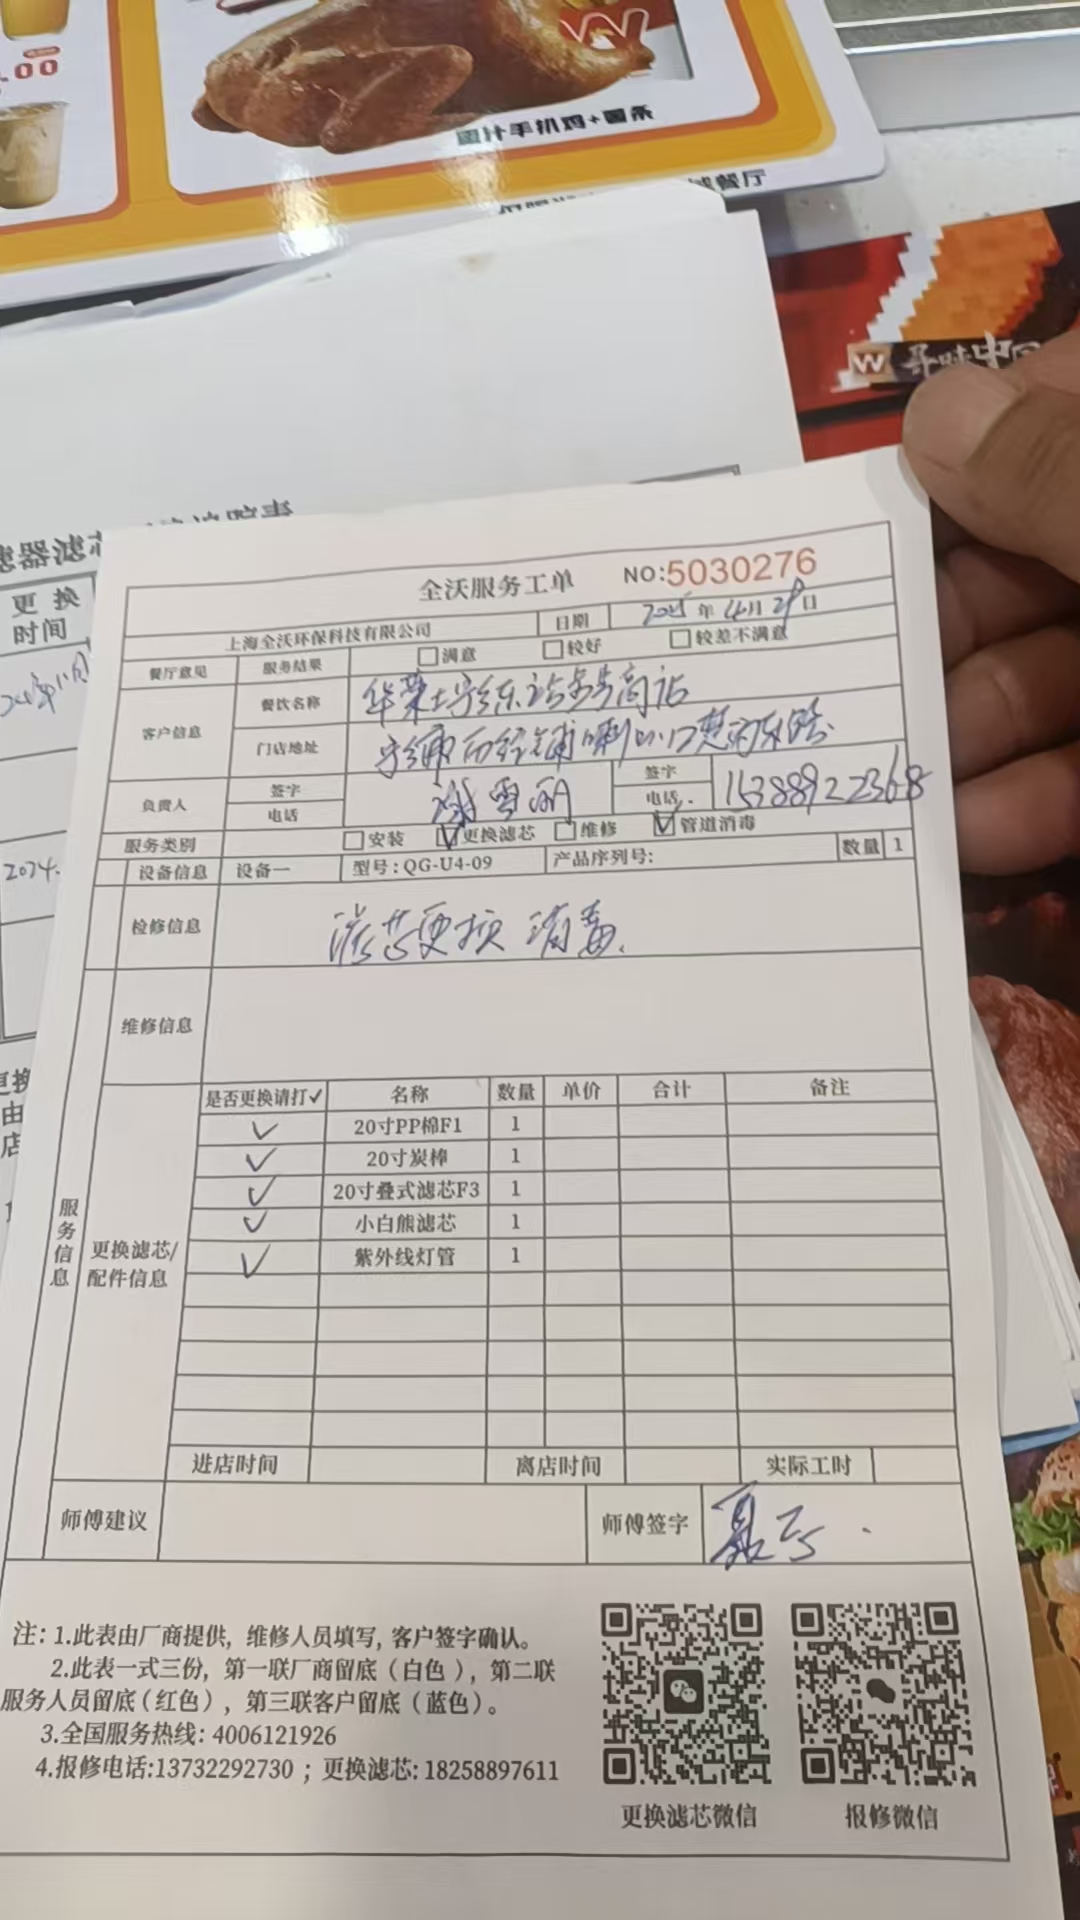 .00
图片手扒鸡+薯条
餐厅
W 寻味中国
更换
时间
2024.
全沃服务工单 NO:5030276
上海全沃环保科技有限公司 日期 2025年 月29日
餐厅意见 服务结果 满意 较好 较差不满意
客户信息 餐饮名称 华莱士宁乡东站步步高店
门店地址 宁乡市历经铺喇叭口楚沩东路
负责人 签字 谢雪丽 签字
电话 电话 15388922368
服务类别 安装 ✓更换滤芯 维修 ✓管道消毒
设备信息 设备一 型号:QG-U4-09 产品序列号: 数量 1
检修信息 滤芯更换 消毒.
维修信息
服务信息
更换滤芯/
配件信息
是否更换请打✓ 名称 数量 单价 合计 备注
✓ 20寸PP棉F1 1
✓ 20寸炭棒 1
✓ 20寸叠式滤芯F3 1
✓ 小白熊滤芯 1
✓ 紫外线灯管 1
进店时间 离店时间 实际工时
师傅建议 师傅签字
注: 1.此表由厂商提供, 维修人员填写, 客户签字确认。
2.此表一式三份, 第一联厂商留底（白色）, 第二联
服务人员留底（红色）, 第三联客户留底（蓝色）。
3.全国服务热线: 4006121926
4.报修电话:13732292730 ; 更换滤芯: 18258897611
更换滤芯微信 报修微信